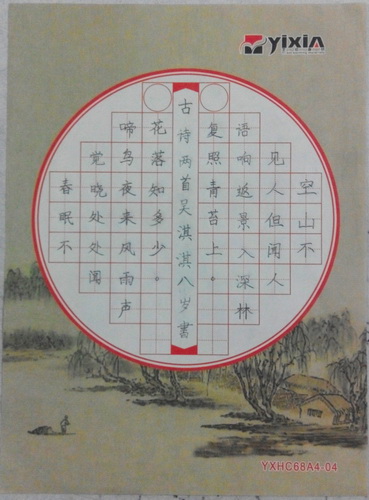 YIXIA
空山不
见人但闻人
语响返景入深林
复照青苔上。
古诗两首吴淇淇八岁書
春眠不
觉晓处处闻
啼鸟夜来风雨声
花落知多少。
YXHC68A4-04